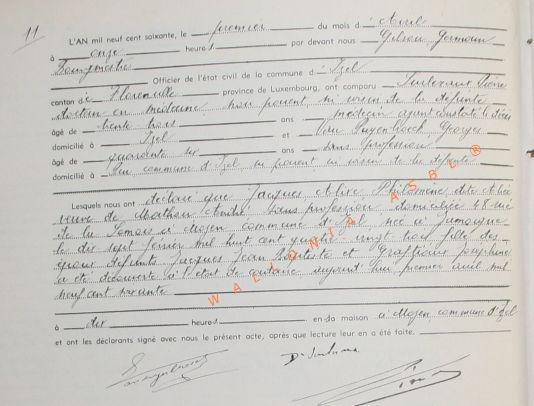 11
L'AN mil neuf cent soixante, le premier du mois d' Avril
à onze heures par devant nous Gilson Germain
Bourgmestre Officier de l'état civil de la commune d' Izel
canton de Florenville province de Luxembourg, ont comparu Pierre
docteur en médecine non parent ni voisin de la défunte médecin ayant constaté le décès
âgé de trente trois ans
domicilié à Izel et Georges
âgé de quarante six ans sans profession
domicilié à commune d'Izel parent ni voisin de la défunte
Lesquels nous ont déclaré que Jacques Alixe Philomène dite Alice
veuve de Mathieu André sans profession domiciliée 48 rue
de la Semois à Moyen commune d'Izel née à Jamoigne
le dix sept février mil huit cent quatre vingt trois fille des
époux défunts Jacques Jean Baptiste et Joséphine
a été découverte à l'état de cadavre aujourd'hui premier avril mil
neuf cent soixante
à dix heures en sa maison à Moyen commune d'Izel
et ont les déclarants signé avec nous le présent acte, après que lecture leur en a été faite.
WALLONIA ASBL®